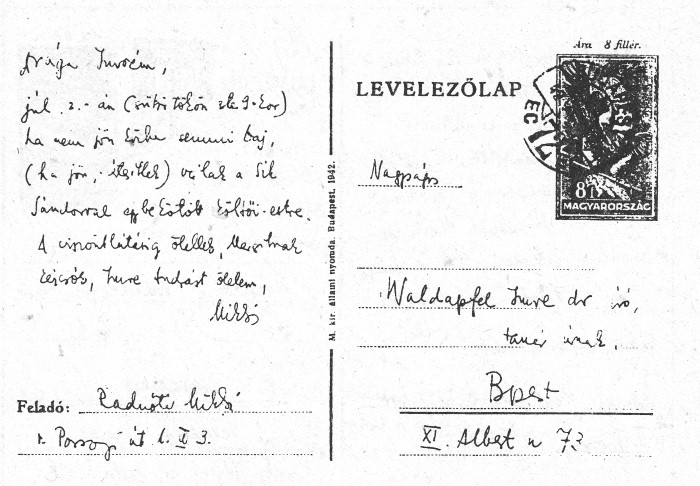 Drága Imrém,
júl. 2.-án (csütörtökön este 9-kor)
ha nem jön közbe semmi baj,
(ha jön, értesítlek) várlak a Sik
Sándorral egybekötött költői-estre.
A viszontlátásig ölellek, Margitnak
kézcsók, Imre Andrást ölelem,
Miklós
Feladó: Radnóti Miklós
Pozsonyi út 1. II 3.
M. kir. állami nyomda. Budapest, 1942.
Ára 8 fillér.
LEVELEZŐLAP
8f
MAGYARORSZÁG
Nagyságos
Waldapfel Imre dr író,
tanár úrnak.
Bpest
XI. Albert u 73